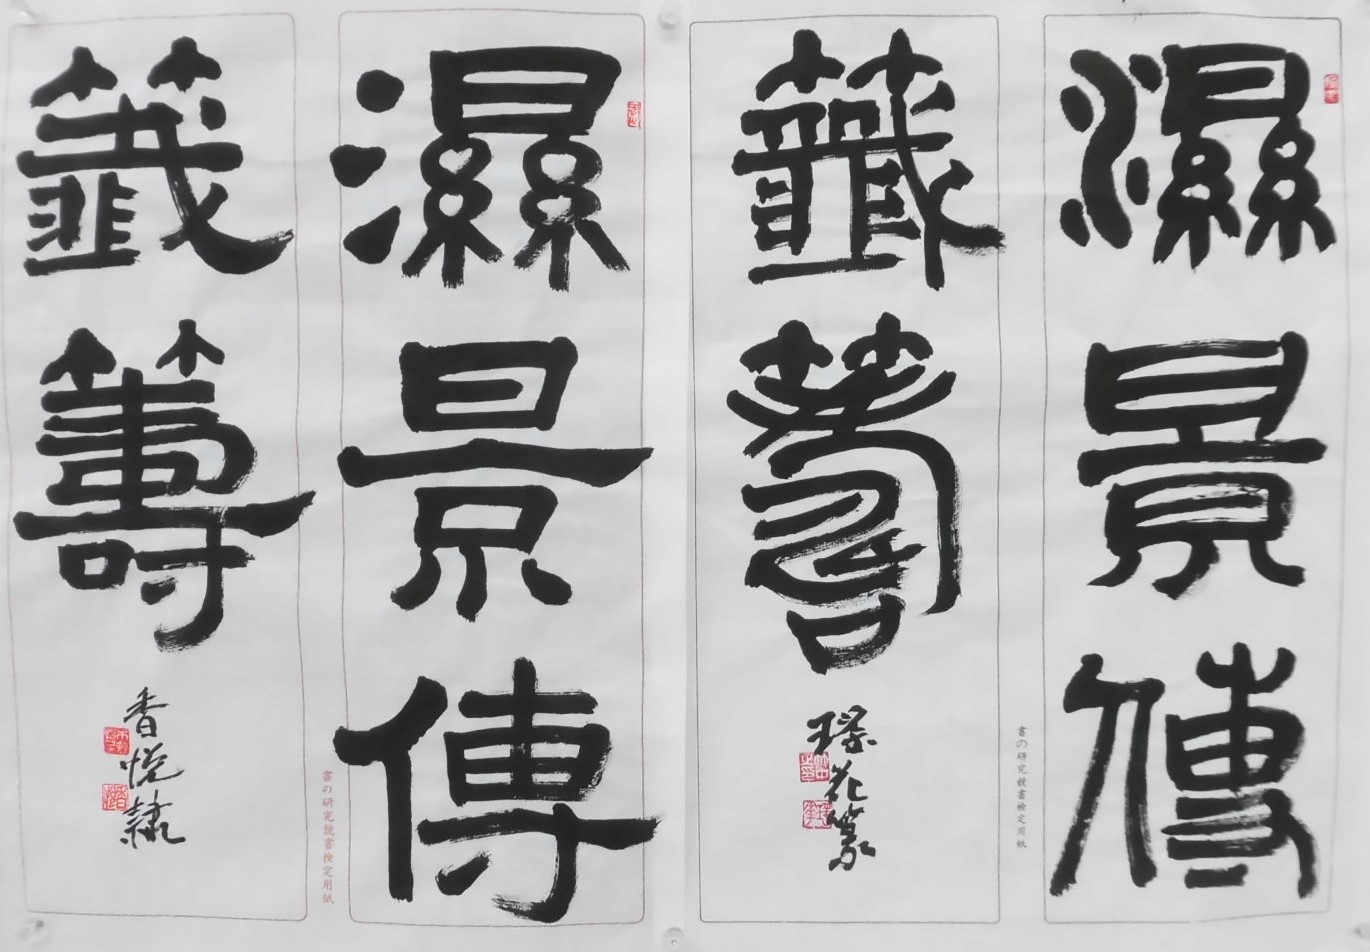 濕景傳
書の研究競書検定用紙
籤籌
璨花篆
濕景傳
書の研究競書検定用紙
籤籌
香悦隷